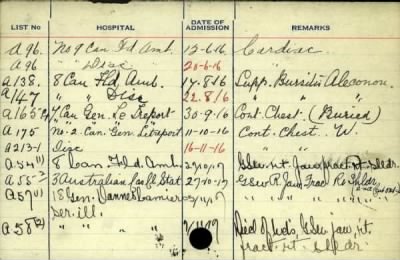 LIST No HOSPITAL DATE OF ADMISSION REMARKS
A96. No 9 Can Fd Amb. 13-6-16 Cardiac.
A96 " Disc 20-6-16
A138. 8 Can Fld Amb. 17-8-16 Supp. Bursitis
A147 " " Disc 22/8/16 " "
A165 Can. Gen. Le Treport 30-9-16 Cont. Chest. (Buried)
A175 No-2. Can. Gen. Letreport 11-10-16 Cont. Chest. W.
A213-1 Disc 16-11-16
8 Can Fld. Amb. 27/10/17 GSW. rt. Jaw fract. rt. sldr.
3 Australian Cas Cl Stat 27-10-17 GSW R Jaw Frac R. Shldr.
A57(1) 18 Gen. Dannes Camiers
Ser. ill.
A58(2) Died of Wds, GSW jaw, rt.
fract. rt. sldr.